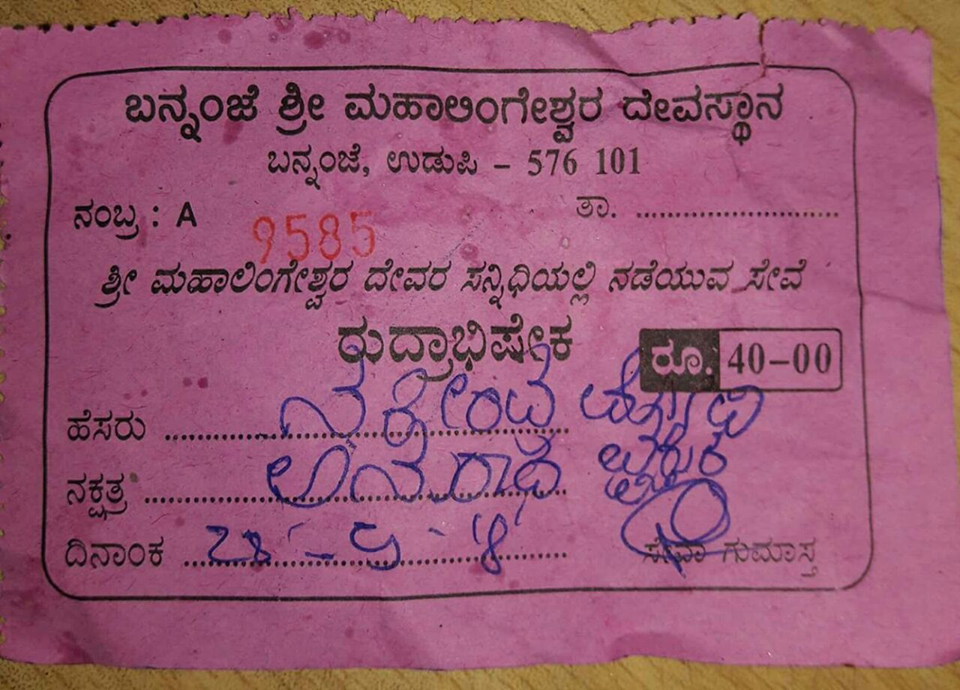 ಬನ್ನಂಜೆ ಶ್ರೀ ಮಹಾಲಿಂಗೇಶ್ವರ ದೇವಸ್ಥಾನ
ಬನ್ನಂಜೆ, ಉಡುಪಿ – 576 101
ನಂಬ್ರ : A 9585 ತಾ. ..............................
ಶ್ರೀ ಮಹಾಲಿಂಗೇಶ್ವರ ದೇವರ ಸನ್ನಿಧಿಯಲ್ಲಿ ನಡೆಯುವ ಸೇವೆ
ರುದ್ರಾಭಿಷೇಕ ರೂ. 40-00
ಹೆಸರು
ನಕ್ಷತ್ರ ಅನುರಾಧ
ದಿನಾಂಕ ಸೇವಾ ಗುಮಾಸ್ತ